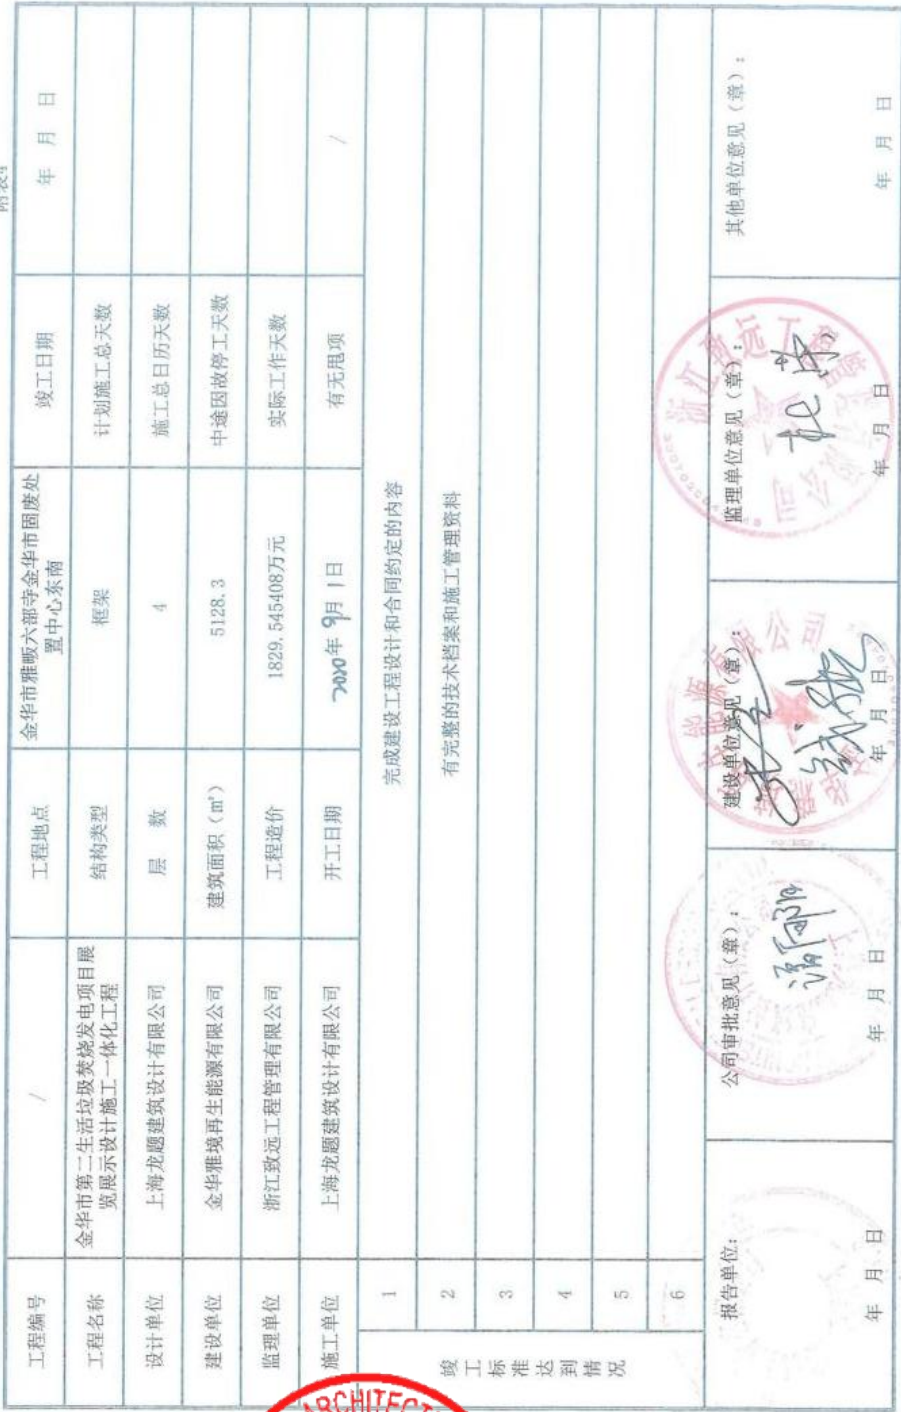 工程编号 / 工程地点 金华市雅畈六部寺金华市固废处
置中心东南 竣工日期 年 月 日
工程名称 金华市第二生活垃圾焚烧发电项目展
览展示设计施工一体化工程 结构类型 框架 计划施工总天数
设计单位 上海龙题建筑设计有限公司 层 数 4 施工总日历天数
建设单位 金华雅境再生能源有限公司 建筑面积（㎡） 5128.3 中途因故停工天数
监理单位 浙江致远工程管理有限公司 工程造价 1829.545408万元 实际工作天数
施工单位 上海龙题建筑设计有限公司 开工日期 2020年 9月 1日 有无甩项 /
竣工标准达到情况
1 完成建设工程设计和合同约定的内容
2 有完整的技术档案和施工管理资料
3
4
5
6
报告单位：
年 月 日
公司审批意见（章）：
年 月 日
建设单位意见（章）：
年 月 日
监理单位意见（章）：
年 月 日
其他单位意见（章）：
年 月 日